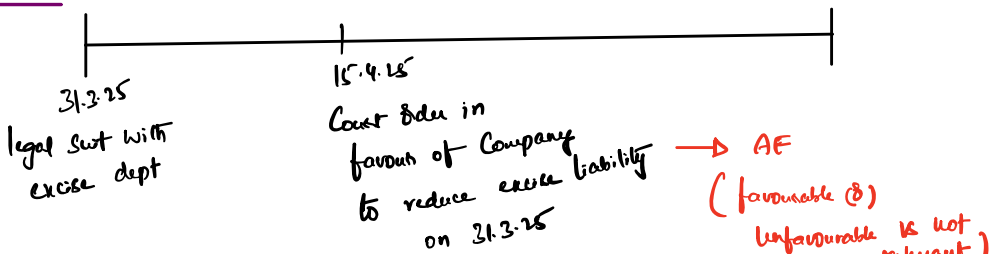 31.3.25
legal Suit with
excise dept
15.4.25
Court Order in
favour of Company
to reduce excise liability
on 31.3.25
→ AE
(favourable (or)
Unfavourable is not